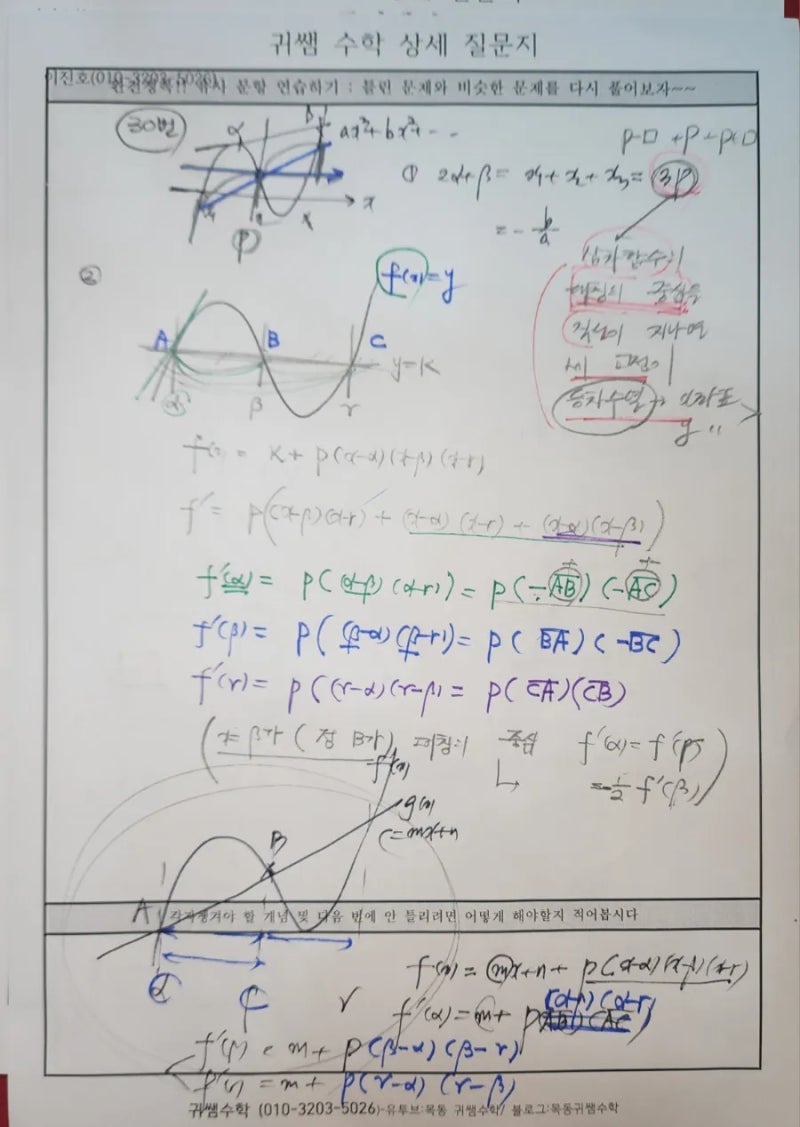 귀쌤 수학 상세 질문지
이진호(010-3203-5026)
유사 문항 연습하기 : 틀린 문제와 비슷한 문제를 다시 풀어보자~~
30번
α
β
ax³+bx²+- - -
p-□ + p + p+□
x
p
① 2α+β = x₁+x₂+x₃= 3p
= - b/a
삼차함수의
대칭의 중심을
직선이 지나면
세 교점이
등차수열 → x좌표
y 〃
②
f(x)=y
A B C
y=K
α β r
f(x) = K + p(x-α)(x-β)(x-r)
f' = p((x-β)(x-r) + (x-α)(x-r) + (x-α)(x-β))
f'(α) = p(α-β)(α-r) = p(-AB)(-AC)
f'(β) = p((β-α)(β-r) = p(BA)(-BC)
f'(r) = p((r-α)(r-β) = p(CA)(CB)
(x=β가 (점 B가) 대칭의 중심 f'(α) = f'(r)
= -1/2 f'(β))
f(x)
g(x)
(=mx+n
B
A
각자챙겨야 할 개념 및 다음 번에 안 틀리려면 어떻게 해야할지 적어봅시다
α β r
f(x) = mx+n+ p(x-α)(x-β)(x-r)
(α-β)(α-r)
f'(α) = m+ p(AB)(AC)
f'(β) = m + p(β-α)(β-r)
f'(r) = m + p(r-α)(r-β)
귀쌤수학 (010-3203-5026)-유투브:목동 귀쌤수학/ 블로그:목동귀쌤수학